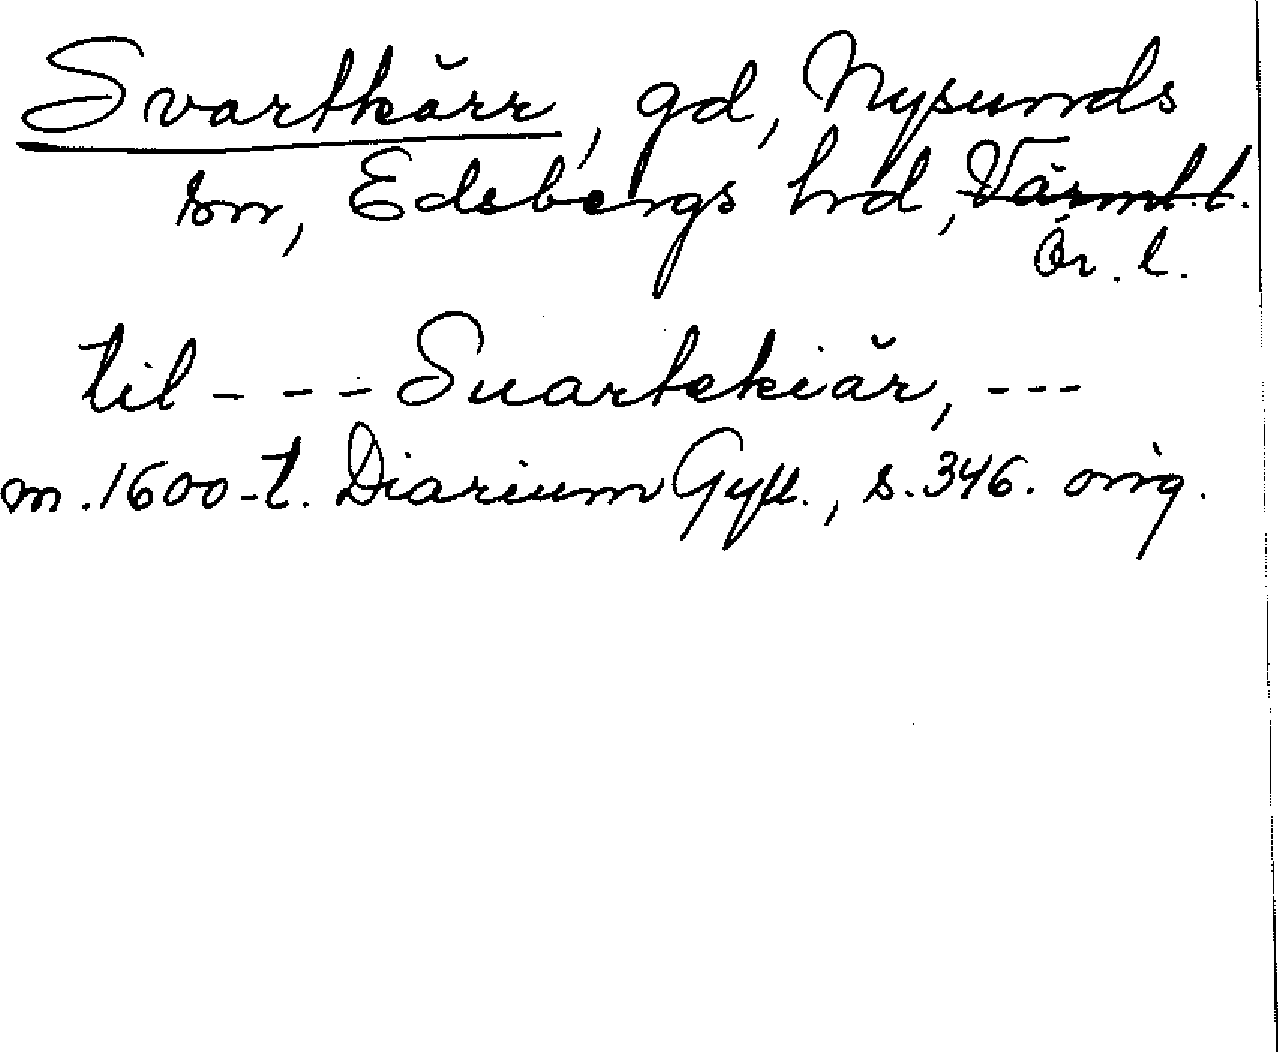 Svartkärr, gd, Nysunds
sn, Edsbergs hrd, Värml. l.
Ör. l.
til - - - Suartekiär, ---
m. 1600-t. Diarium Gyll., s. 346. orig.